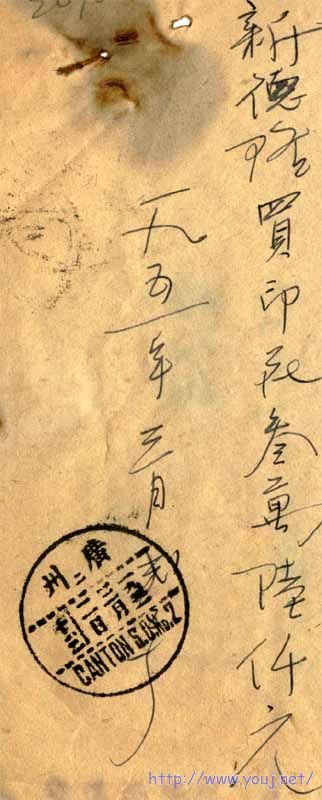 新德隆買印花叁萬陸仟元
一九五一年三月
廣州
CANTON S.O. No. 7
http://www.youj.net/